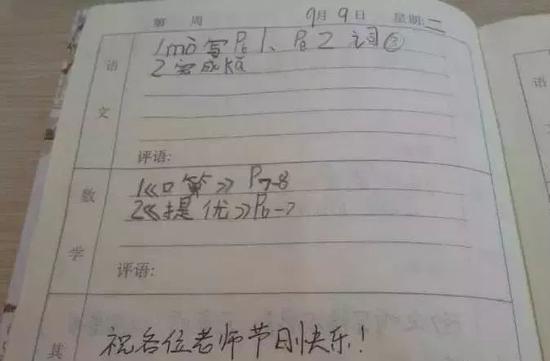 第 周 9月9日 星期:二
语文
1mò写P61、P62词②
2完成kǎ
评语:
数学
1《口算》P7-8
2《提优》P6-7
评语:
其
祝各位老师节日快乐!